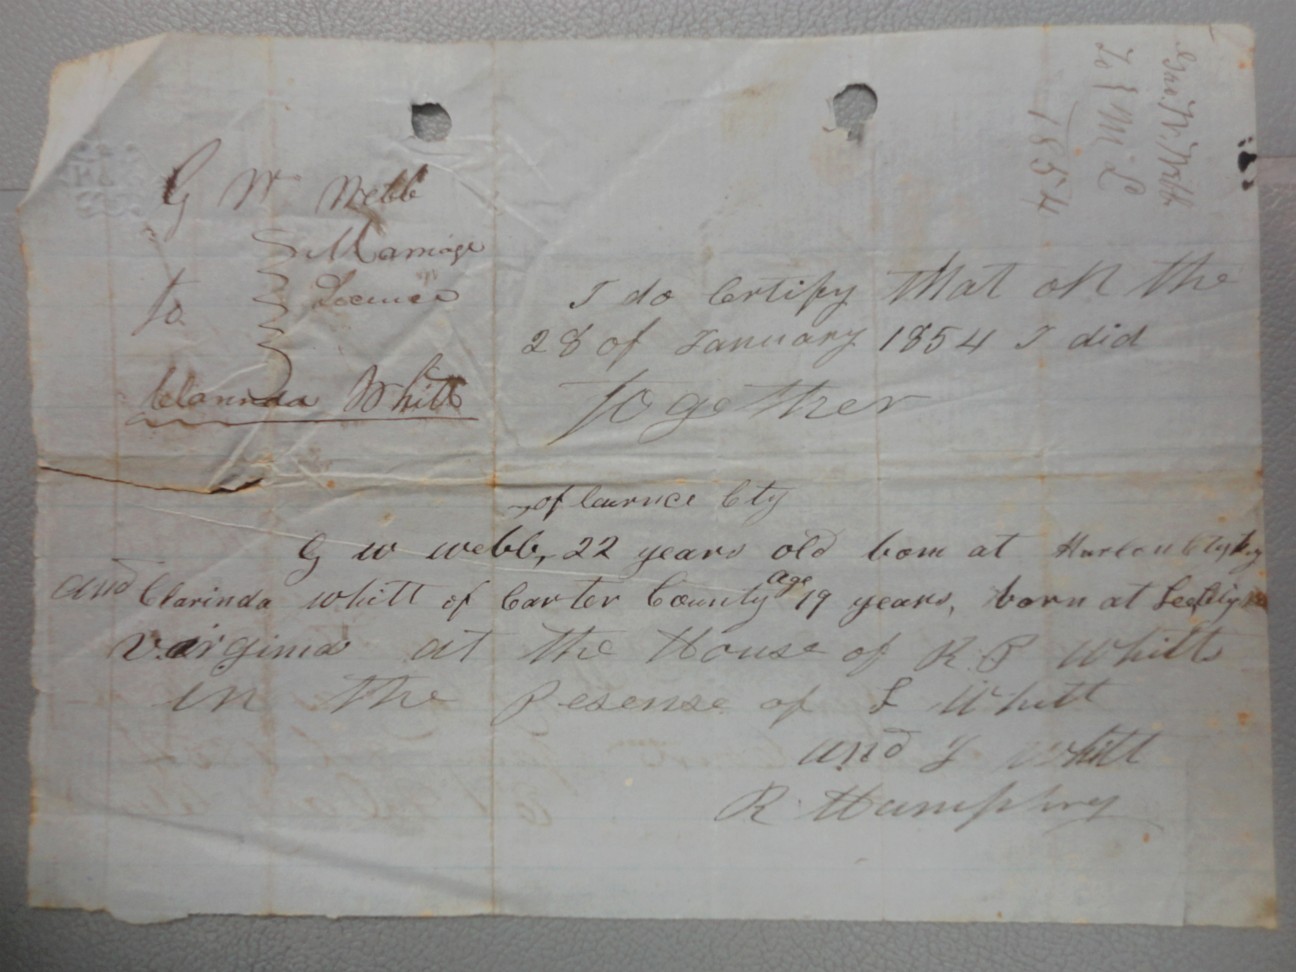 G W Webb
Marriage
to Licence
Clarinda Whitt
Geo. W. Webb
To } M L
1854
I do Certify that on the
28 of January 1854 I did
Together
of Lawrnce Cty
G W Webb, 22 years old born at Harlan Cty Ky
and Clarinda Whitt of Carter County age 19 years, born at Lee
Virginia at the House of R P Whitt
in the Pesense of Whitt
and J Whitt
R Humphrey